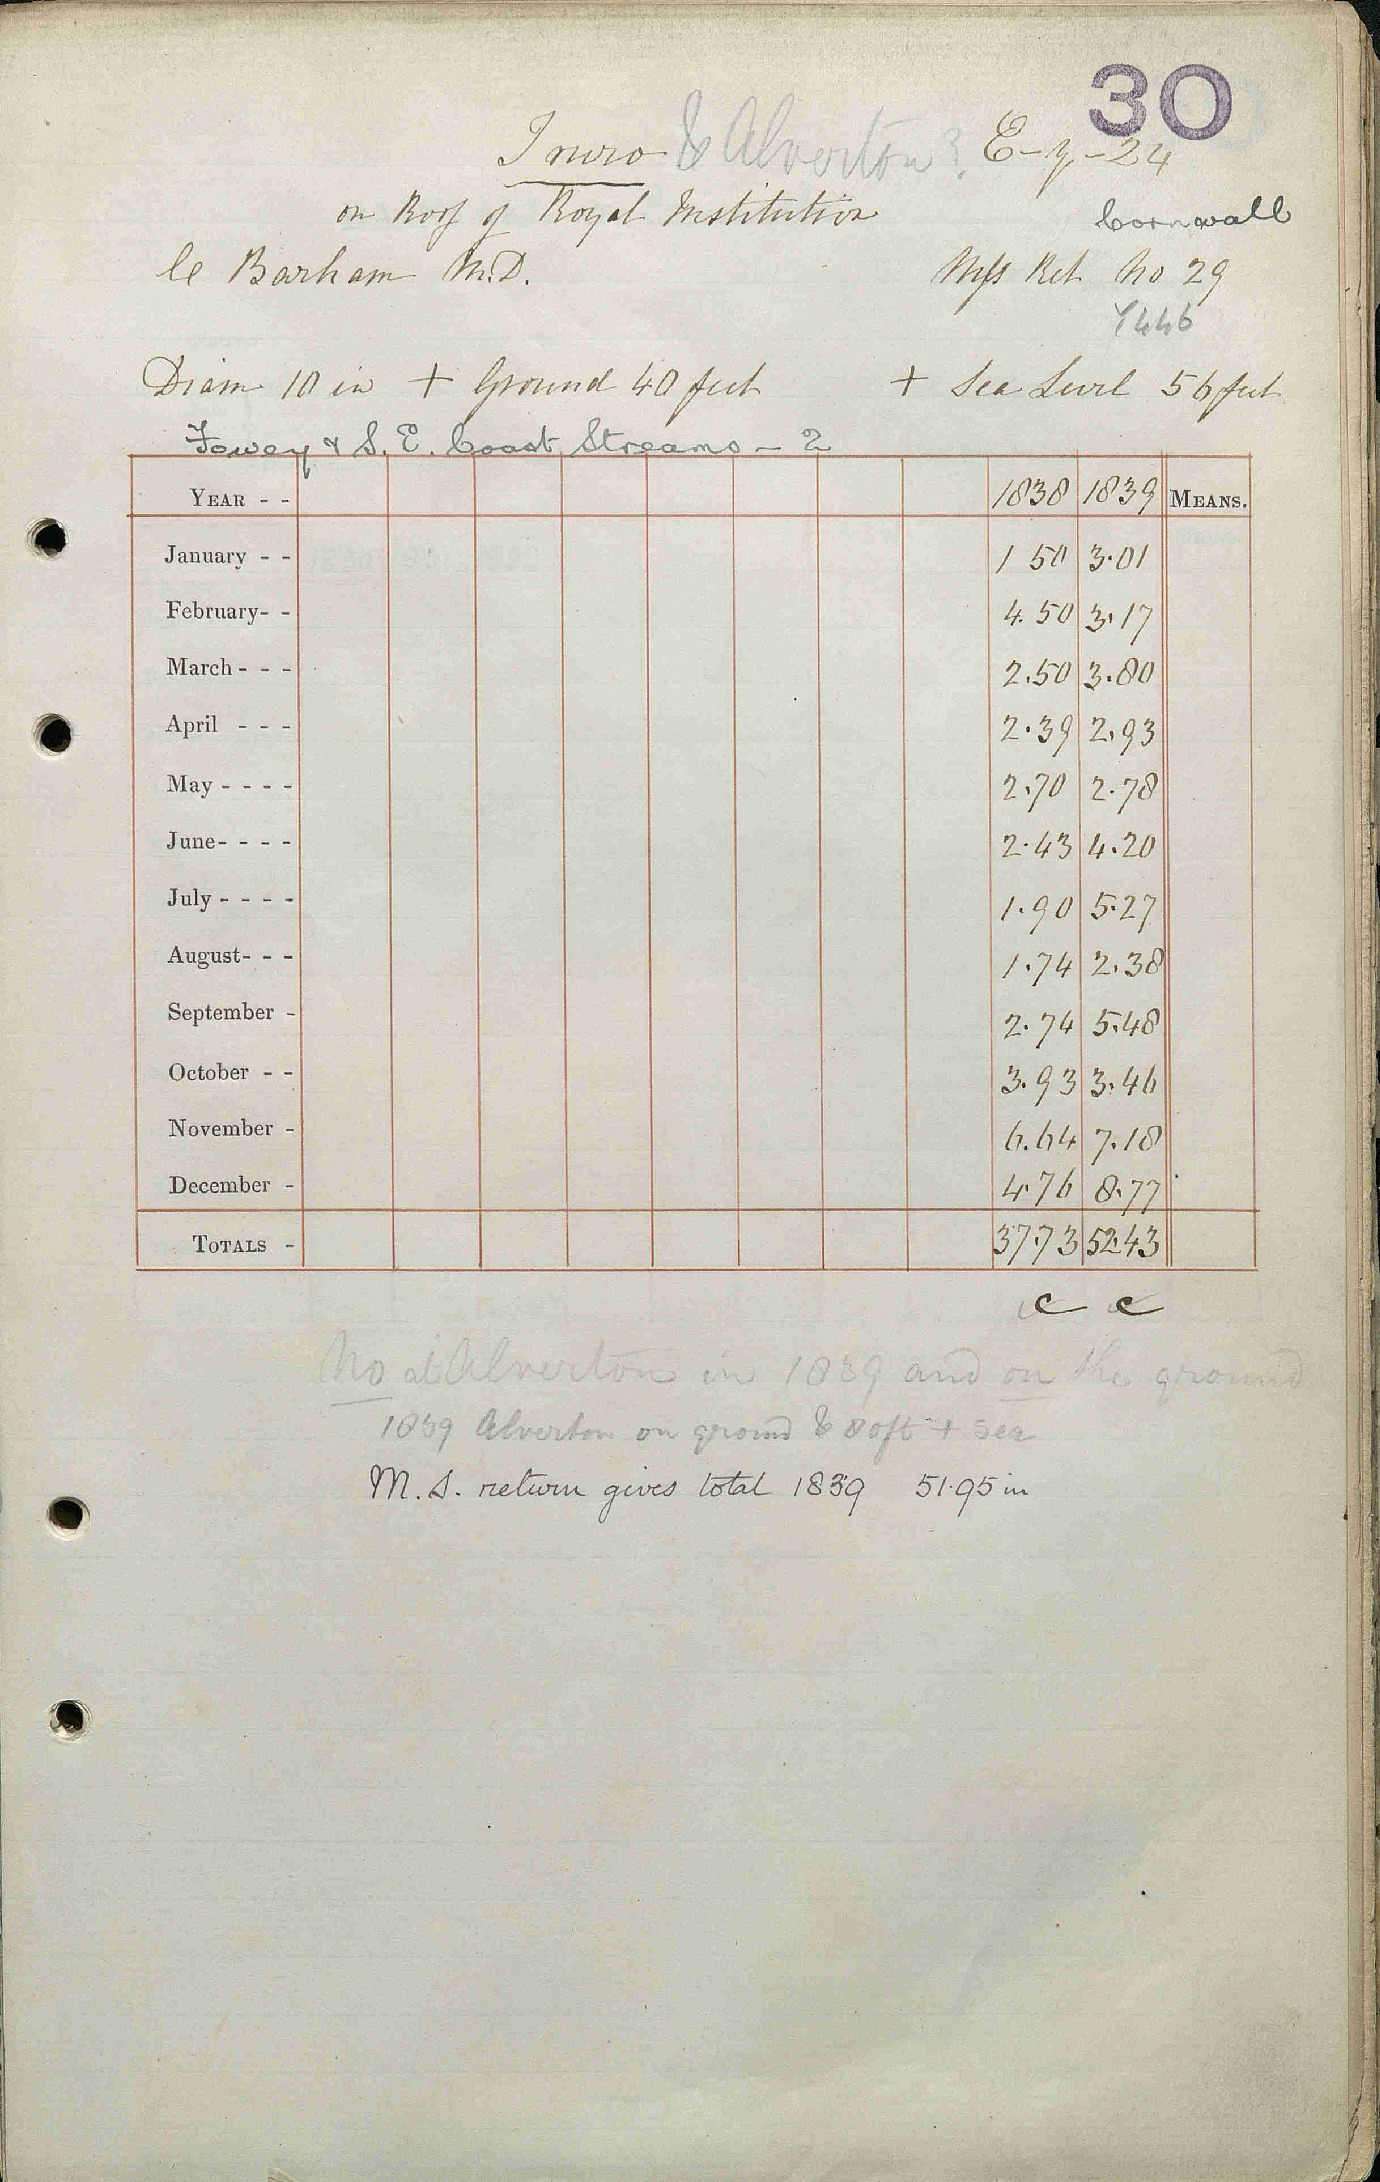 30
Truro & Alverton? E-y-24
on Roof of Royal Institution
Cornwall
C Barham M.D. Mss Ret No 29
Y446
Diam 10 in + Ground 40 feet + Sea Level 56 feet
Fowey & S. E. Coast Streams - 2
YEAR - - 1838 1839 MEANS.
January - - 1 50 3.01
February - - 4.50 3.17
March - - - 2.50 3.80
April - - - 2.39 2.93
May - - - - 2.70 2.78
June - - - - 2.43 4.20
July - - - - 1.90 5.27
August - - - 1.74 2.38
September - 2.74 5.48
October - - 3.93 3.46
November - 6.64 7.18
December - 4.76 8.77
TOTALS - 37.73 52.43
c c
No at Alverton in 1839 and on the ground
1839 Alverton on ground & 80ft + sea
M.S. return gives total 1839 51.95 in